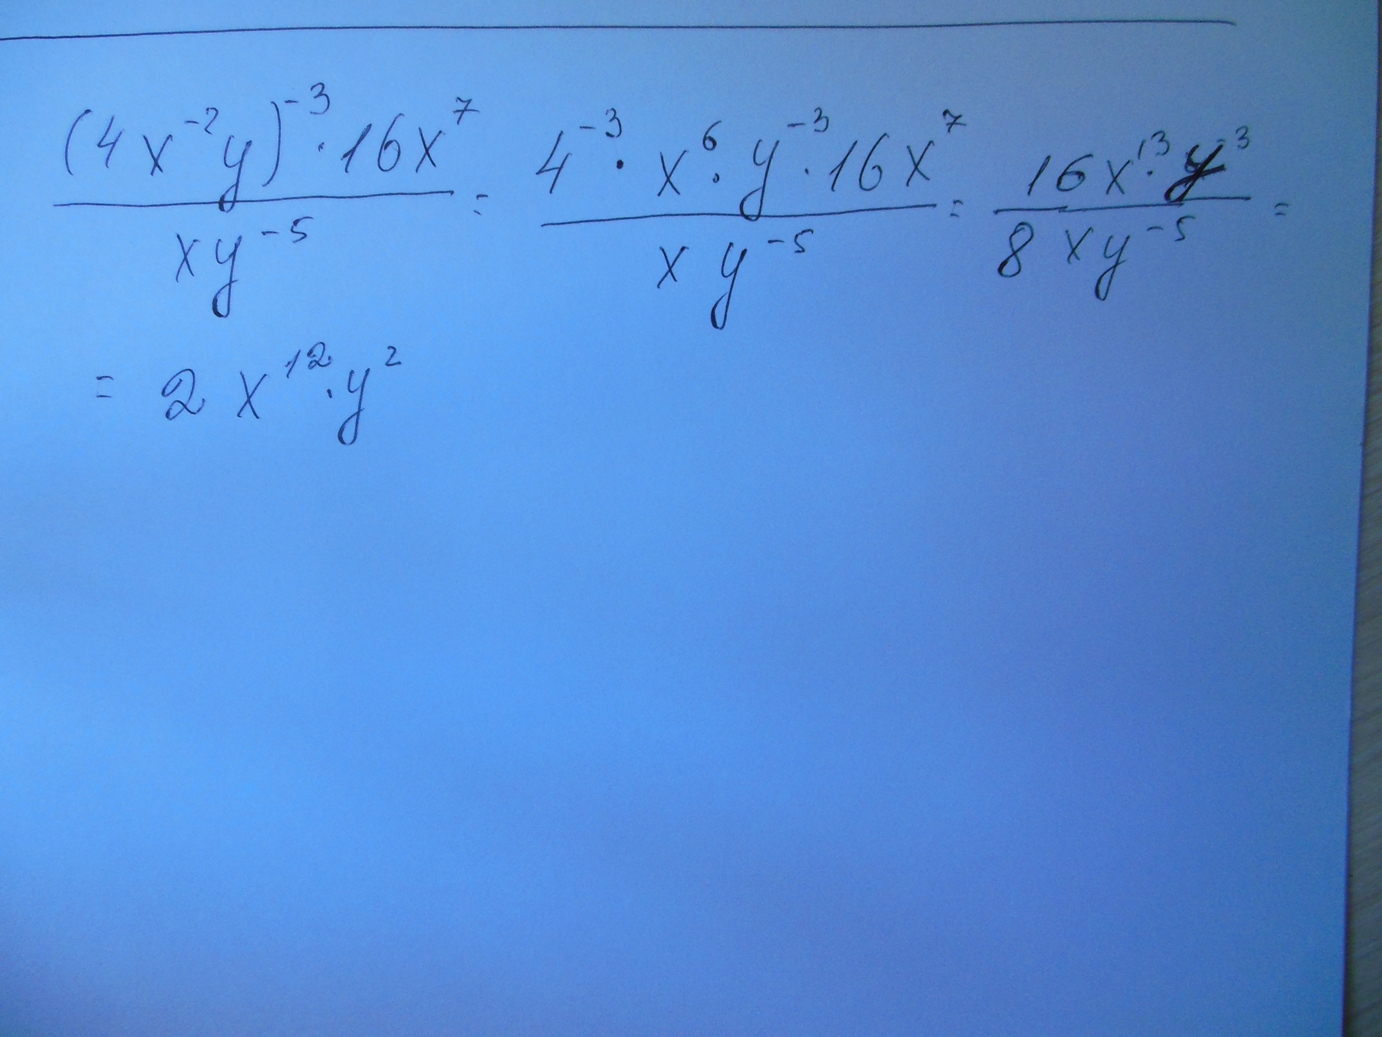 (4x⁻²y)⁻³ · 16x⁷ / xy⁻⁵ = 4⁻³ · x⁶ · y⁻³ · 16x⁷ / xy⁻⁵ = 16x¹³ · y⁻³ / 8xy⁻⁵ =
= 2x¹² · y²